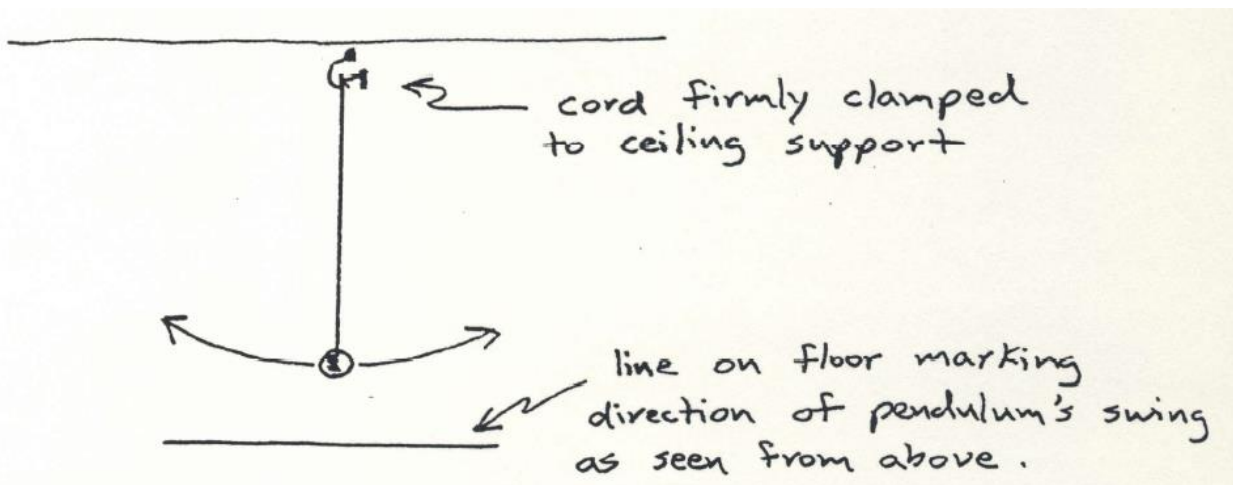 cord firmly clamped
to ceiling support
line on floor marking
direction of pendulum's swing
as seen from above.